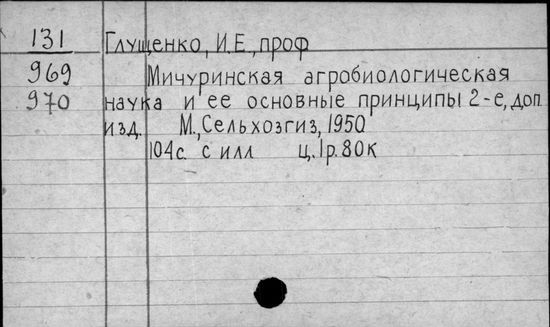 131 Глущенко, И.Е., проф
969 Мичуринская агробиологическая
970 наука и ее основные принципы 2-е, доп.
изд. М., Сельхозгиз, 1950
104с. с илл ц. 1р. 80к